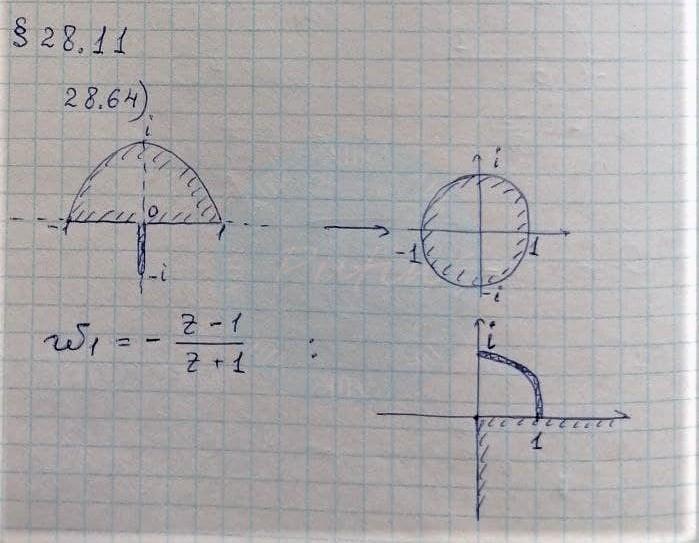 § 28.11
28.64)
i
i
0
-1
1
-1
1
-i
-i
w₁ = - (z - 1)/(z + 1) :
i
1